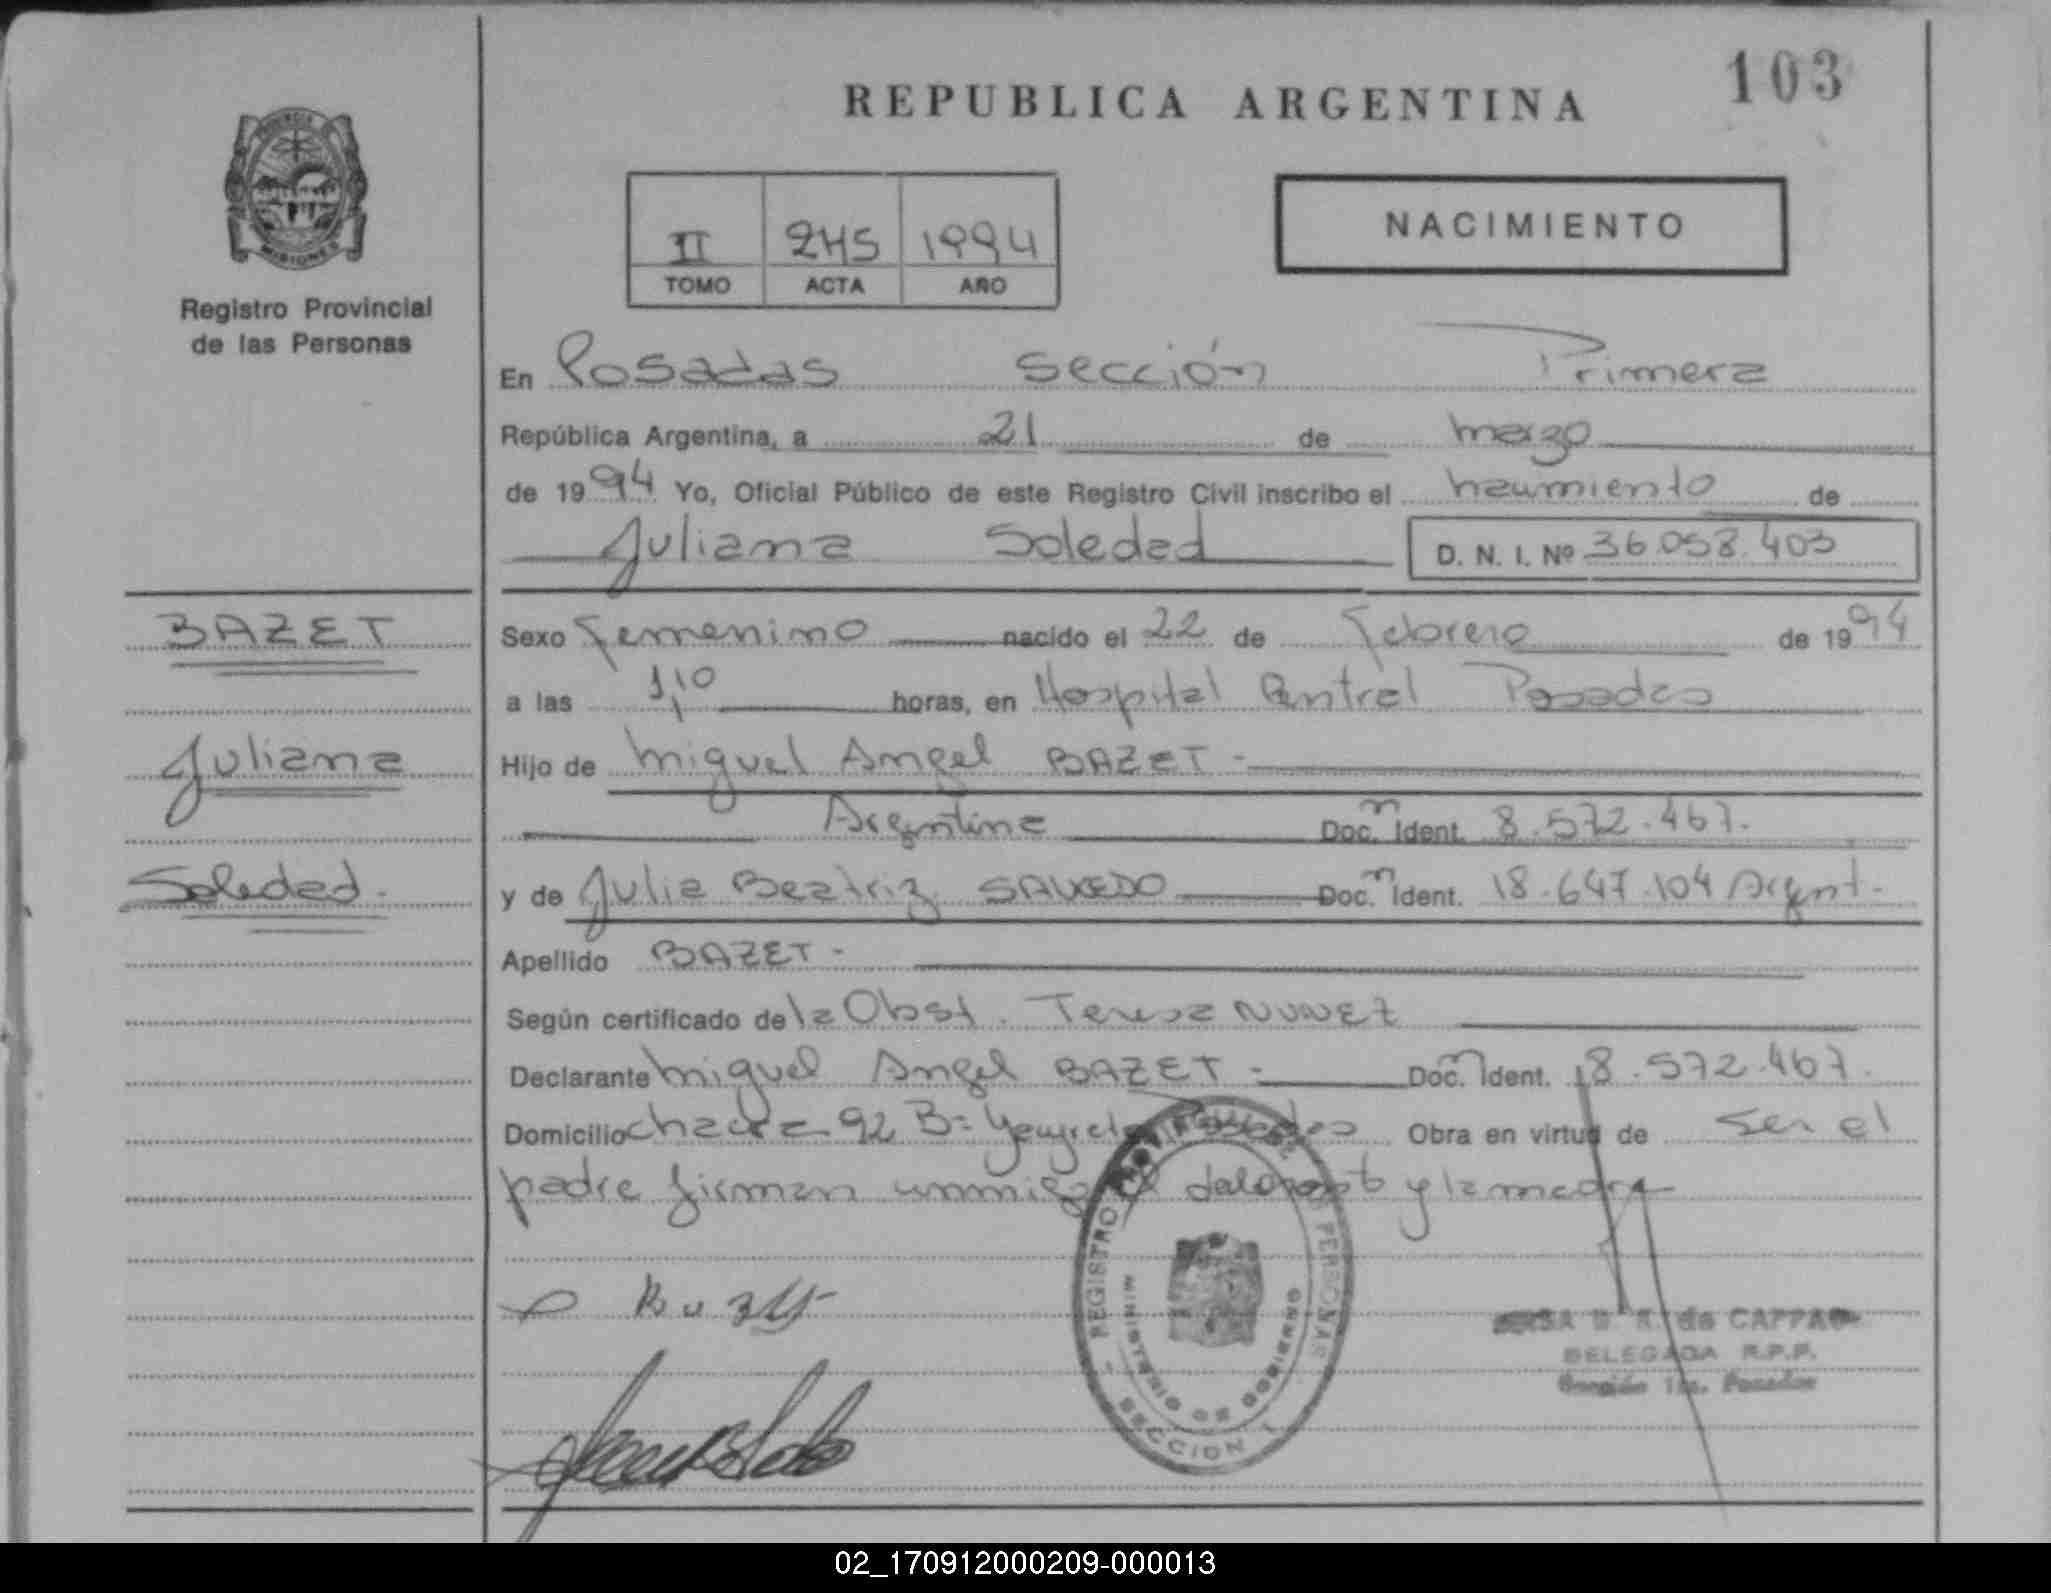 103
REPUBLICA ARGENTINA
PROVINCIA DE MISIONES
Registro Provincial
de las Personas
NACIMIENTO
II 245 1994
TOMO ACTA AÑO
En Posadas Sección Primera
República Argentina, a 21 de marzo
de 1994 Yo, Oficial Público de este Registro Civil inscribo el nacimiento de
Juliana Soledad D. N. I. Nº 36.058.403
BAZET
Juliana
Soledad.
Sexo femenino nacido el 22 de Febrero de 1994
a las 1,10 horas, en Hospital Central Posadas
Hijo de Miguel Angel BAZET -
Argentina Doc. m Ident. 8.572.467.
y de Julia Beatriz SAUCEDO Doc. m Ident. 18.647.104 Argent.
Apellido BAZET -
Según certificado de la Obst. Teresa NUNEZ
Declarante Miguel Angel BAZET - Doc. m Ident. 8.572.467.
Domicilio chacra 92 B= Yacyreta Posadas Obra en virtud de ser el
padre firman conmigo el declarante y la madre
REGISTRO PROVINCIAL DE LAS PERSONAS
MINISTERIO DE GOBIERNO
SECCION 1
de CAPPA
DELEGADA R.P.P.
Sección 1ra. Posadas
02_170912000209-000013